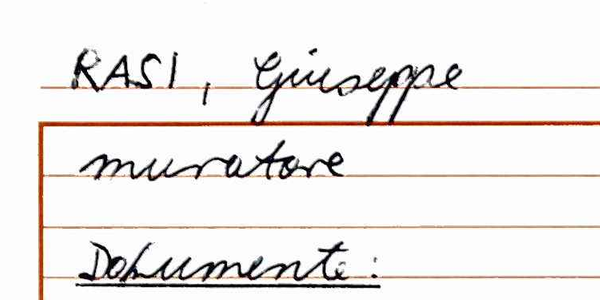 RASI, Giuseppe
muratore
Dokumente: